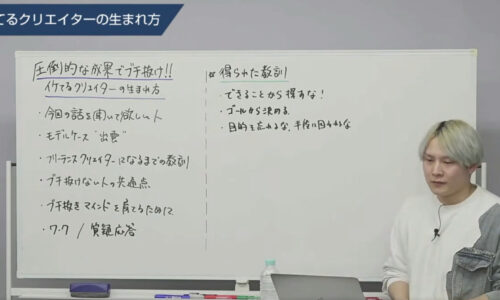 てるクリエイターの生まれ方
圧倒的な成果でブチ抜け!!
イケてるクリエイターの生まれ方
・今回の話を聞いて欲しい人
・モデルケース "出雲"
・フリーランスクリエイターになるまでの教訓
・ブチ抜けない人の共通点
・ブチ抜きマインドを育てるために
・ワーク / 質疑応答
得られた教訓
・できることから探すな!
・ゴールから決める
・目的を忘れるな、手段に囚われるな